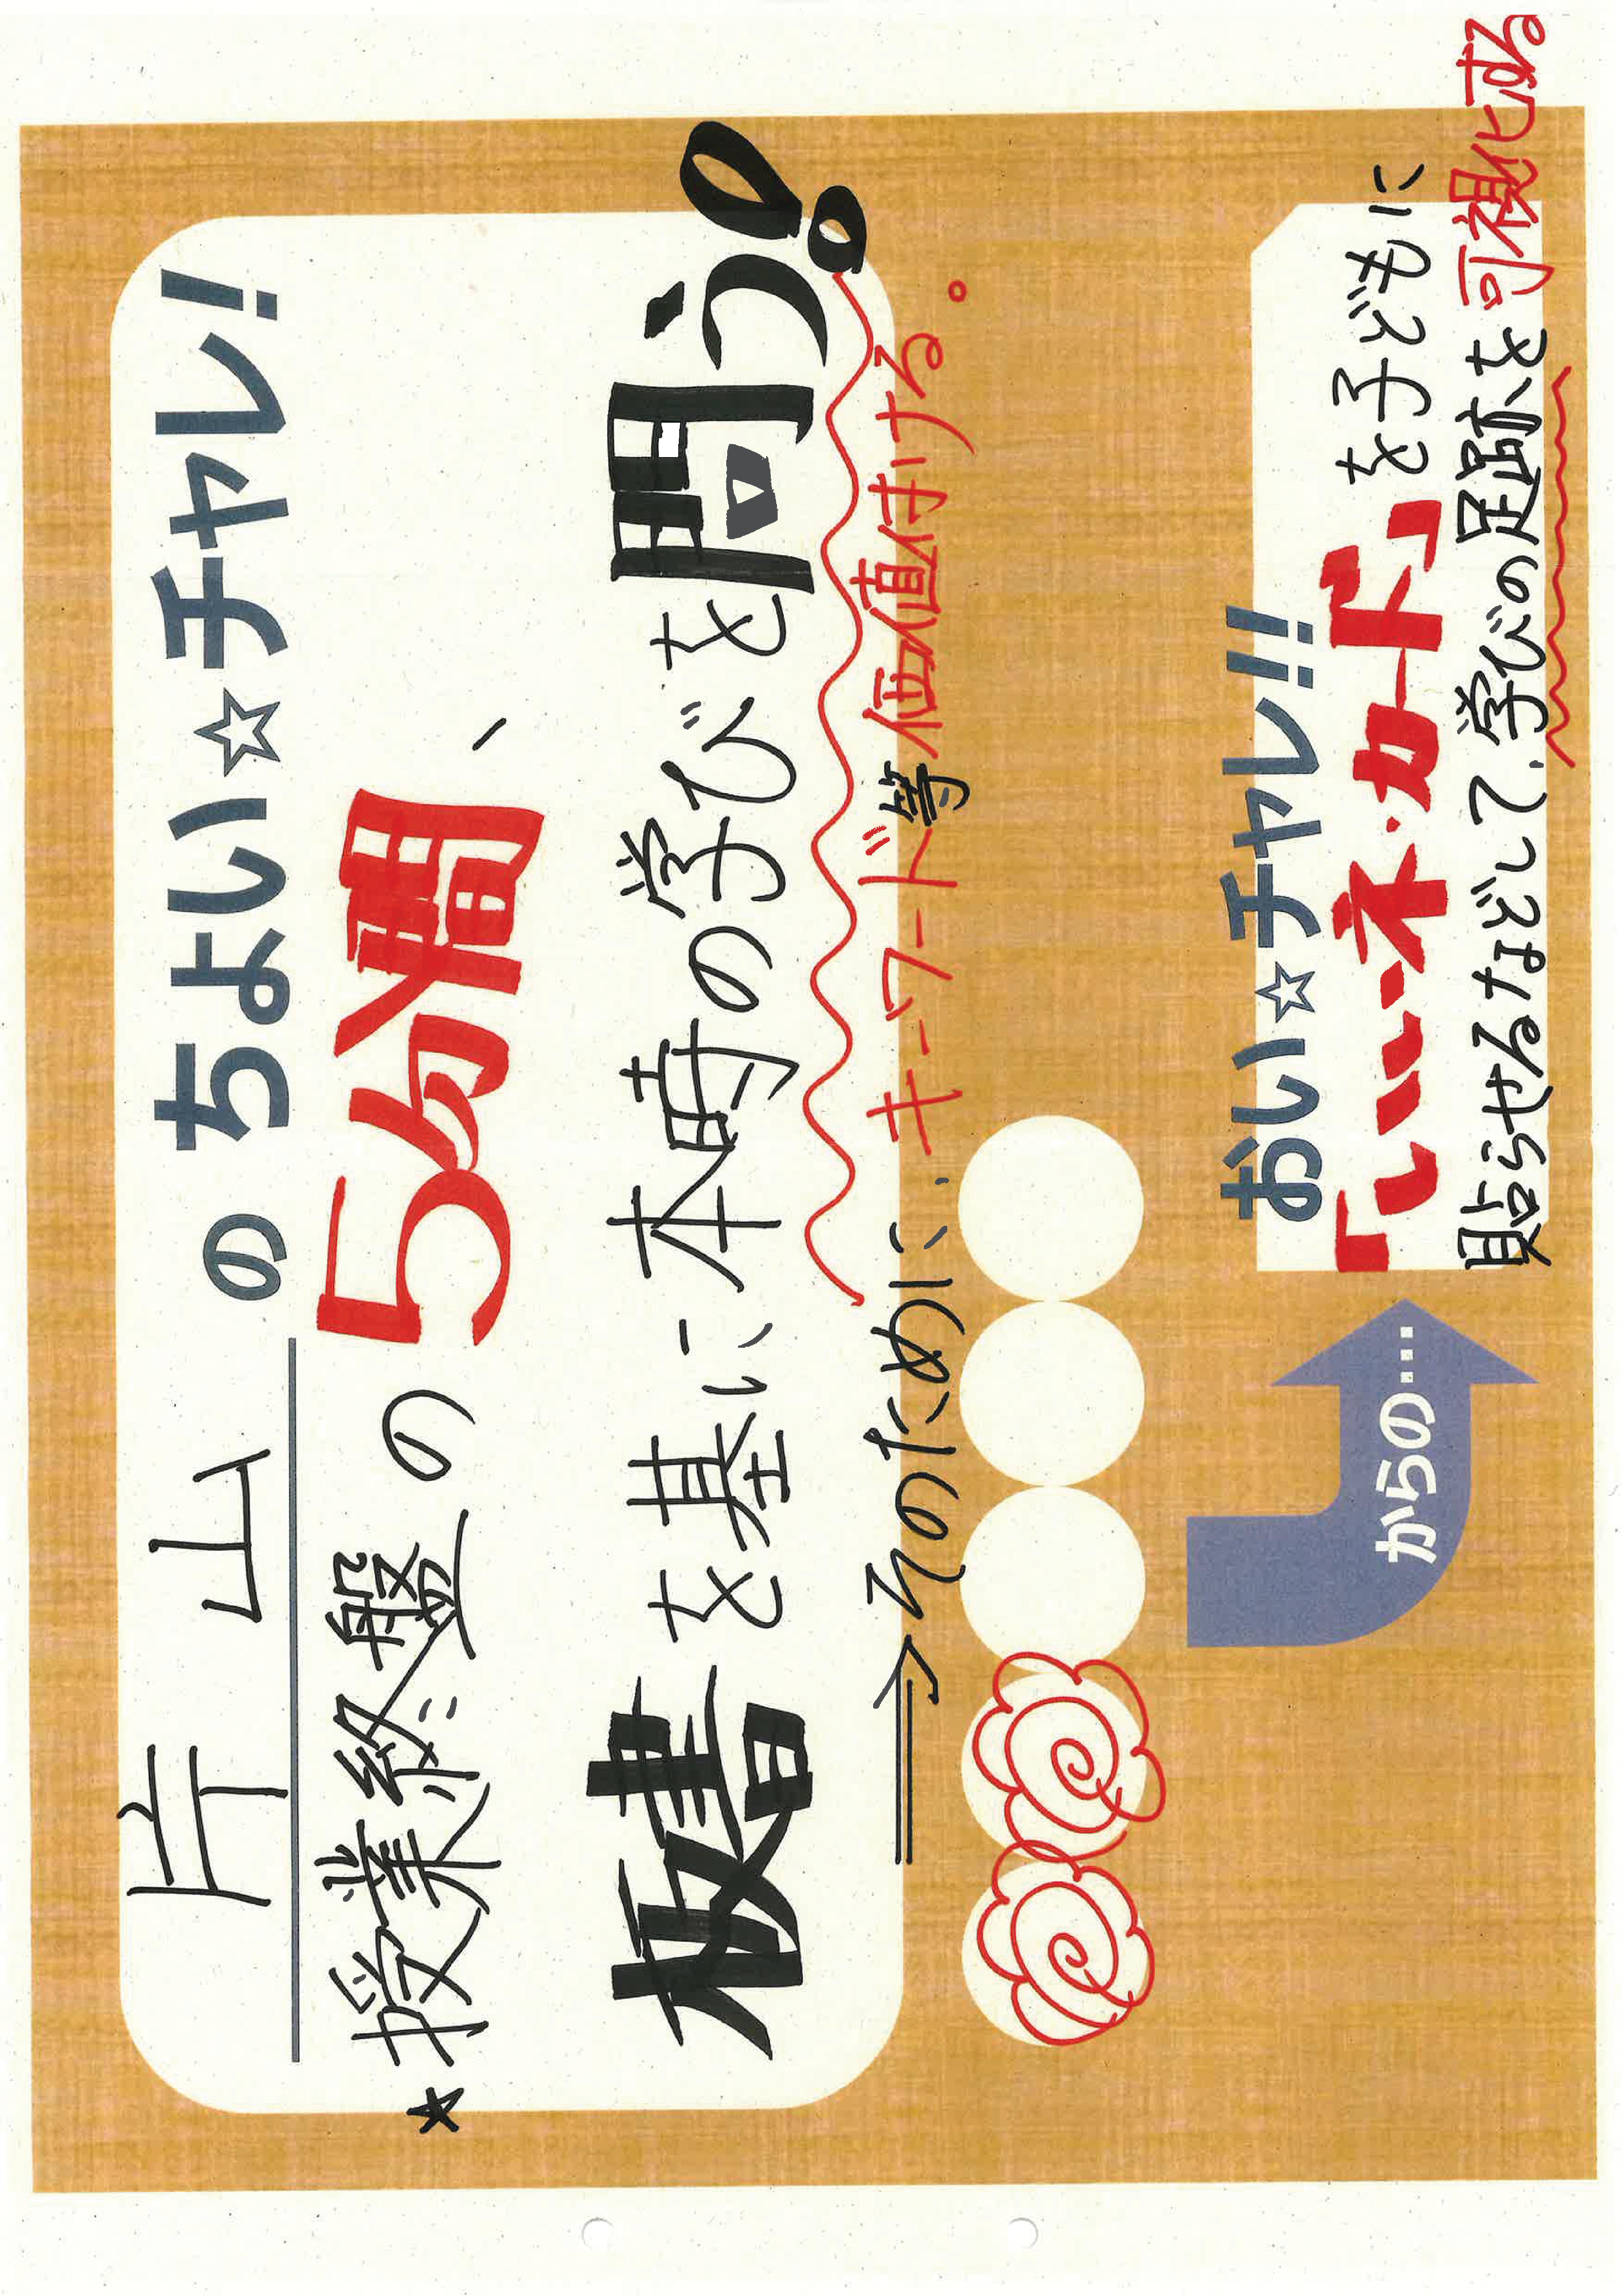 片山 の ちょい☆チャレ！
★授業終盤の5分間、
板書を基に本時の学びを問う!!
⇒そのために、キーワード等価値付ける。
からの…
おい☆チャレ!!
「いいネ・カード」を子どもに
貼らせるなどして、学びの足跡を可視化する